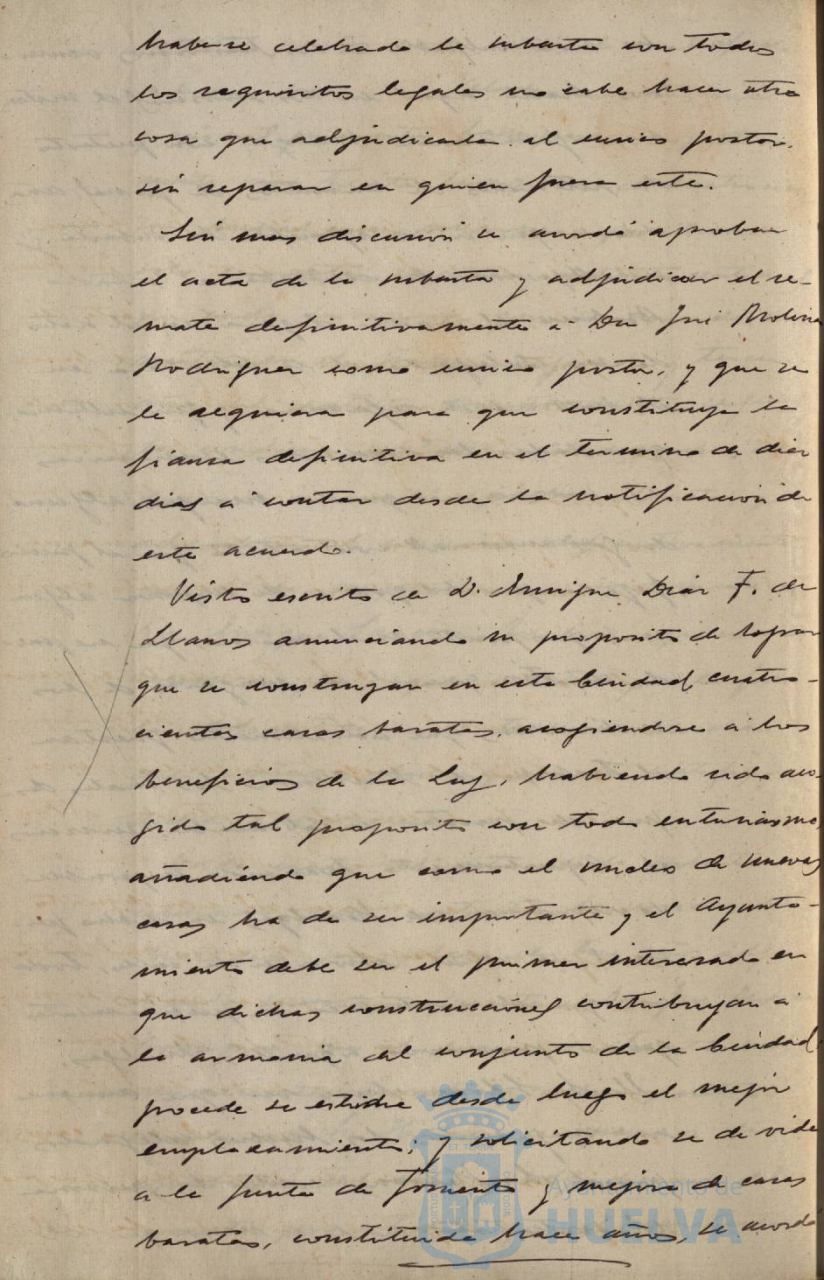 haberse celebrado la subasta con todos
los requisitos legales no cabe hacer otra
cosa que adjudicarla al unico postor,
sin reparar en quien fuera este.
Sin mas discusion se acordó aprobar
el acta de la subasta y adjudicar el re-
mate definitivamente á Don José Molina
Rodriguez como unico postor, y que se
le requiera para que constituya la
fianza definitiva en el termino de diez
dias á contar desde la notificacion de
este acuerdo.
Visto escrito de D. Enrique Diaz F. de
Llanos anunciando su proposito de lograr
que se construyan en esta Ciudad cuatro-
cientas casas baratas, acogiendose á los
beneficios de la Ley, habiendo sido aco-
gido tal proposito con todo entusiasmo,
añadiendo que como el nucleo de nuevas
casas ha de ser importante y el Ayunta-
miento debe ser el primer interesado en
que dichas construcciones contribuyan á
la armonia del conjunto de la Ciudad,
procede se estudie desde luego el mejor
emplazamiento; y solicitando se de vida
a la Junta de Fomento y mejora de casas
baratas, constituida hace años, se acordó
Ayuntamiento de
HUELVA